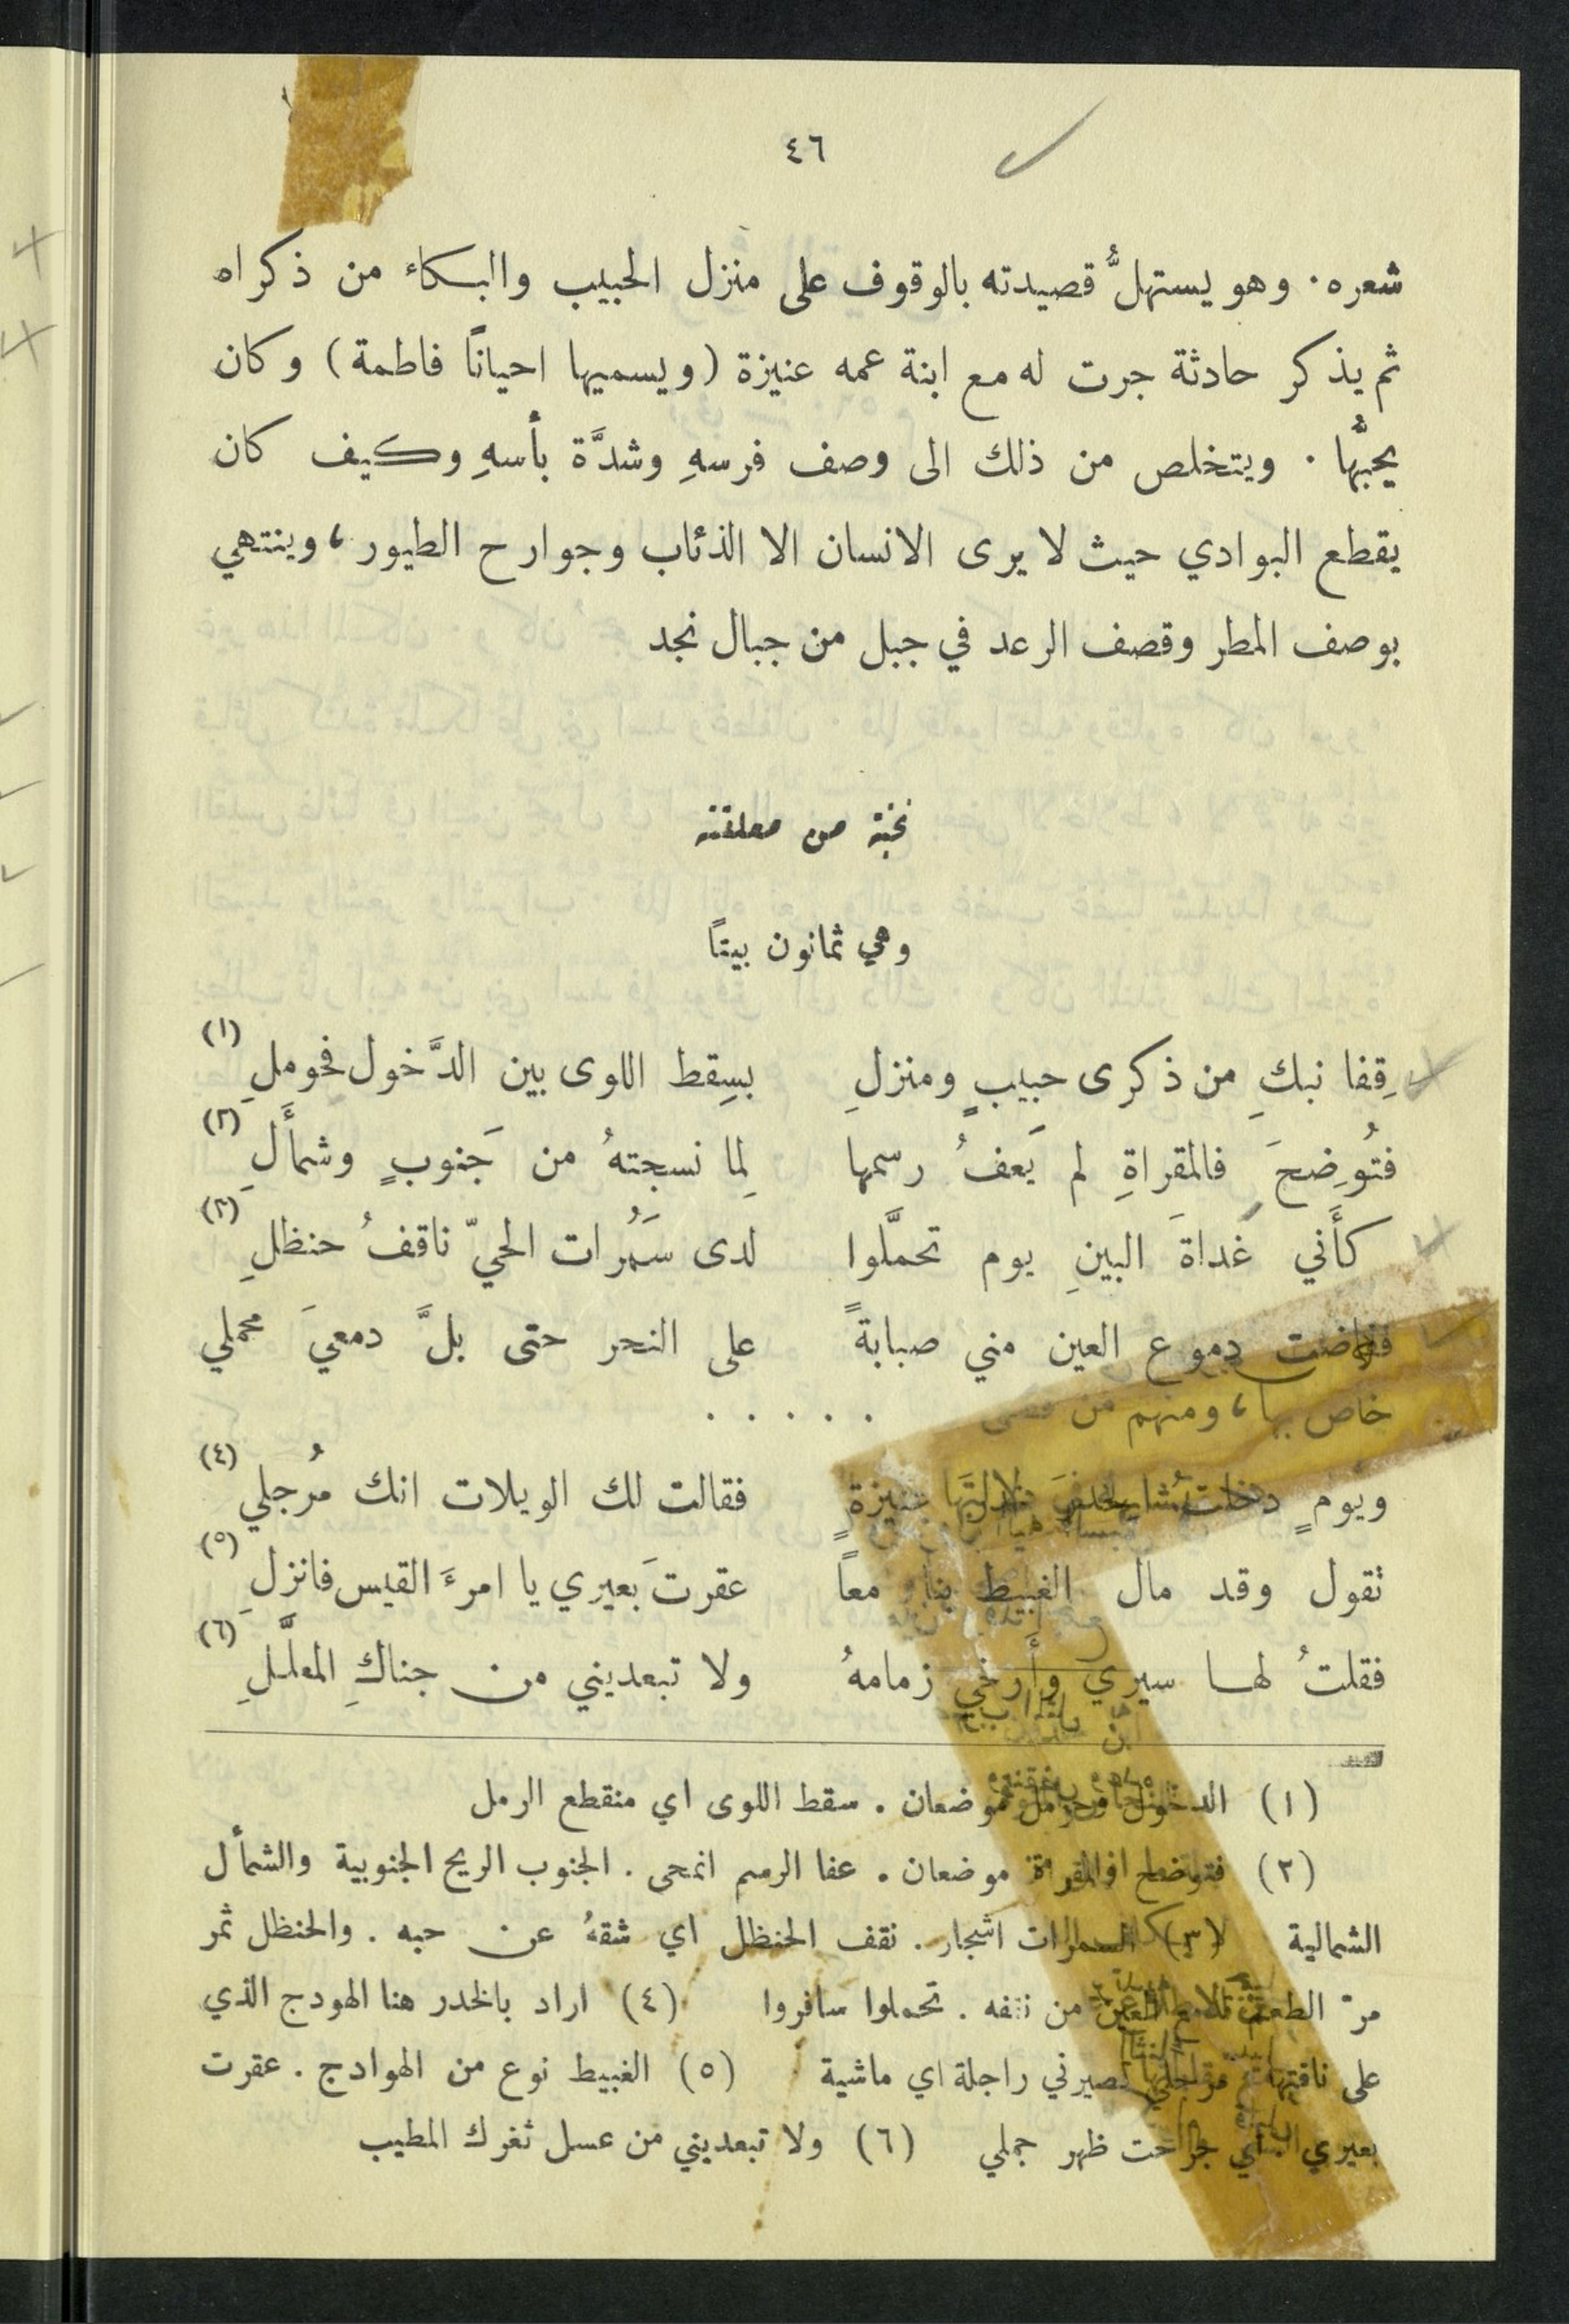 ٤٦
شعره. وهو يستهلُّ قصيدته بالوقوف على منزل الحبيب والبكاء من ذكراه
ثم يذكر حادثة جرت له مع ابنة عمه عنيزة (ويسميها احياناً فاطمة) وكان
يحبُّها. ويتخلص من ذلك الى وصف فرسهِ وشدَّة بأسهِ وكيف كان
يقطع البوادي حيث لا يرى الانسان الا الذئاب وجوارح الطيور، وينتهي
بوصف المطر وقصف الرعد في جبل من جبال نجد
نخبة من معلقته
وهي ثمانون بيتاً
قِفا نبكِ من ذكرى حبيبٍ ومنزلِ بسِقط اللوى بين الدَّخول فحوملِ (١)
فتُوضِحَ فالمقراةِ لم يَعفُ رسمها لِما نسجتهُ من جَنوبٍ وشمأَلِ (٢)
كأَني غَداةَ البينِ يوم تحمَّلوا لدى سَمُرات الحيّ ناقفُ حنظلِ (٣)
ففاضت دموع العين مني صبابةً على النحر حتى بلَّ دمعيَ محملي
خاص بها، ومنهم من . . . . .
ويومٍ دخلتُ عنيزةٍ فقالت لك الويلات انك مُرجلي (٤)
تقول وقد مال الغبيط بنا معاً عقرتَ بعيري يا امرءَ القيس فانزلِ (٥)
فقلتُ لها سيري وأَرخي زمامهُ ولا تبعديني من جناكِ المعلَّلِ (٦)
(١) الدخول وحومل موضعان. سقط اللوى اي منقطع الرمل
(٢) فتوضح والمقراة موضعان. عفا الرسم انمحى. الجنوب الريح الجنوبية والشمأل
الشمالية (٣) السمرات اشجار. نقف الحنظل اي شقهُ عن حبه. والحنظل ثمر
مرّ الطعم تدمع العين من نقفه. تحملوا سافروا (٤) اراد بالخدر هنا الهودج الذي
على ناقتها مرجلي تصيرني راجلة اي ماشية (٥) الغبيط نوع من الهوادج. عقرت
بعيري اي جرحت ظهر جملي (٦) ولا تبعديني من عسل ثغرك المطيب